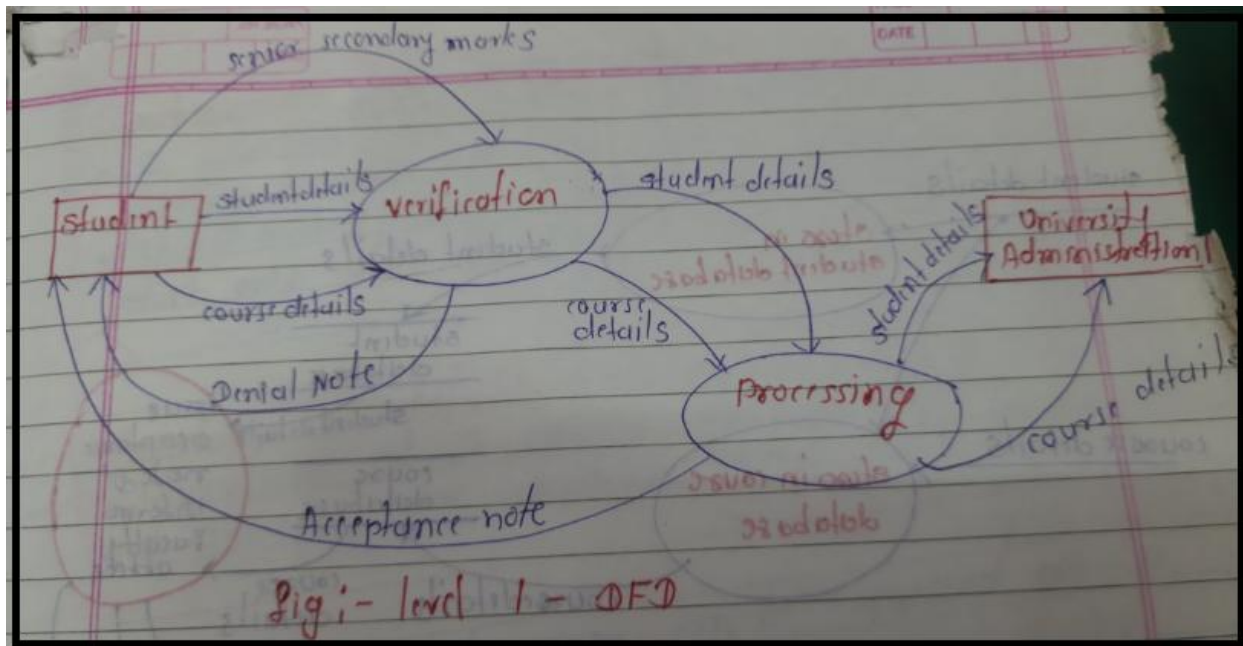 DATE
senior secondary marks
student details
verification
student details
Student
University
Administrettion
student details
course details
course
details
Denial Note
Processing
course details
Acceptance note
fig :- level 1 - DFD